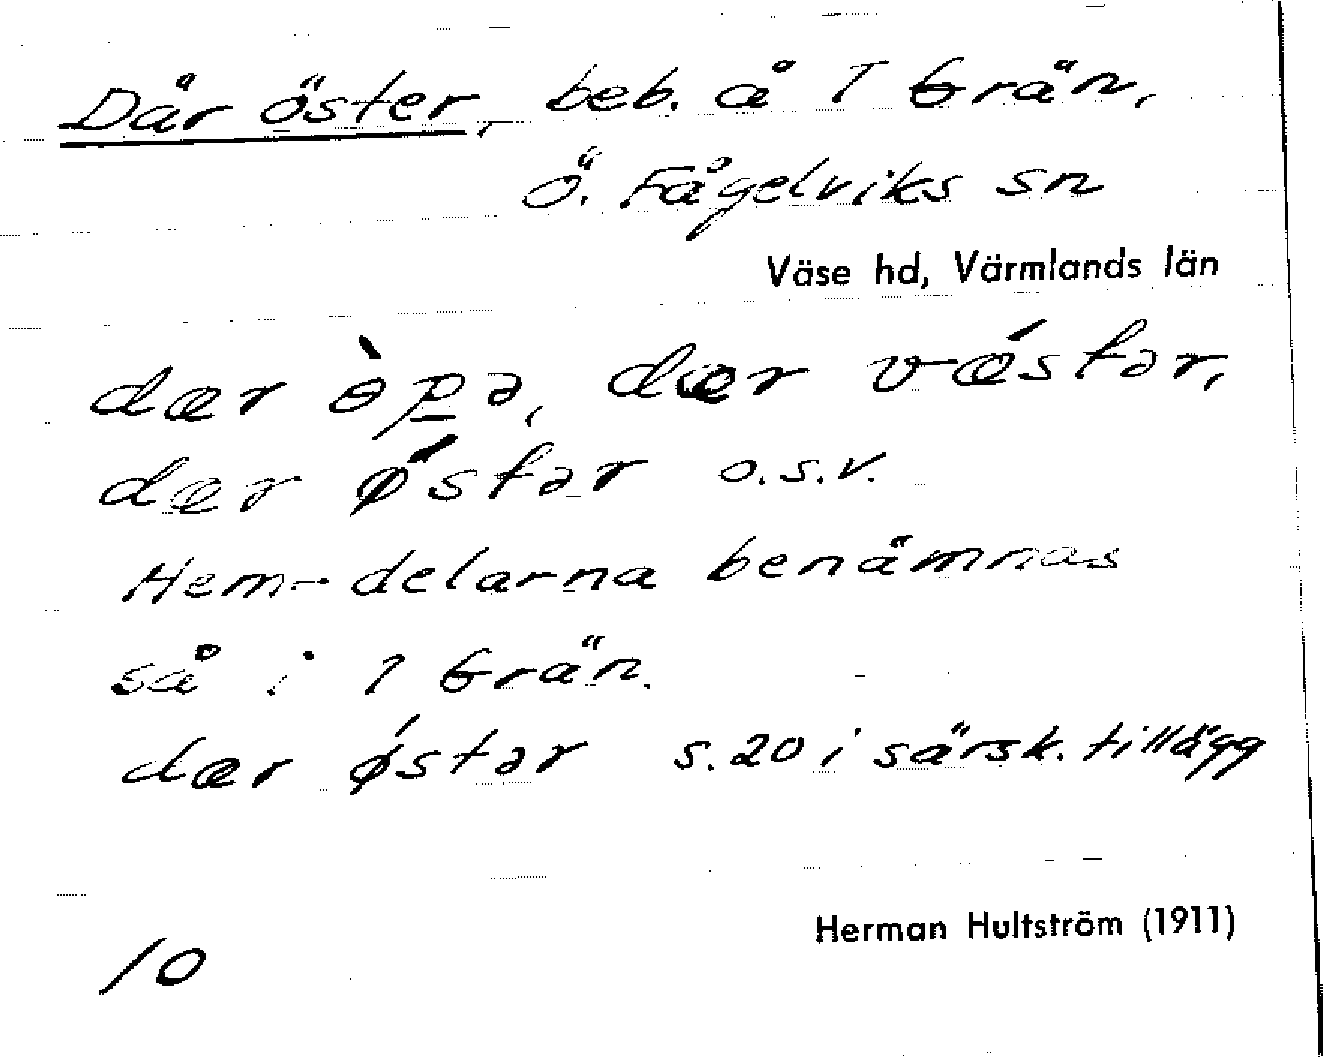 Där öster, beb. å 1 Grän,
Ö. Fågelviks sn
Väse hd, Värmlands län
dær ɵ̀pə, dær vǽstər,
dær ǿstər o.s.v.
Hem-delarna benämnas
så i 1 Grän.
dær ǿstər s. 20 i särsk. tillägg
Herman Hultström (1911)
10